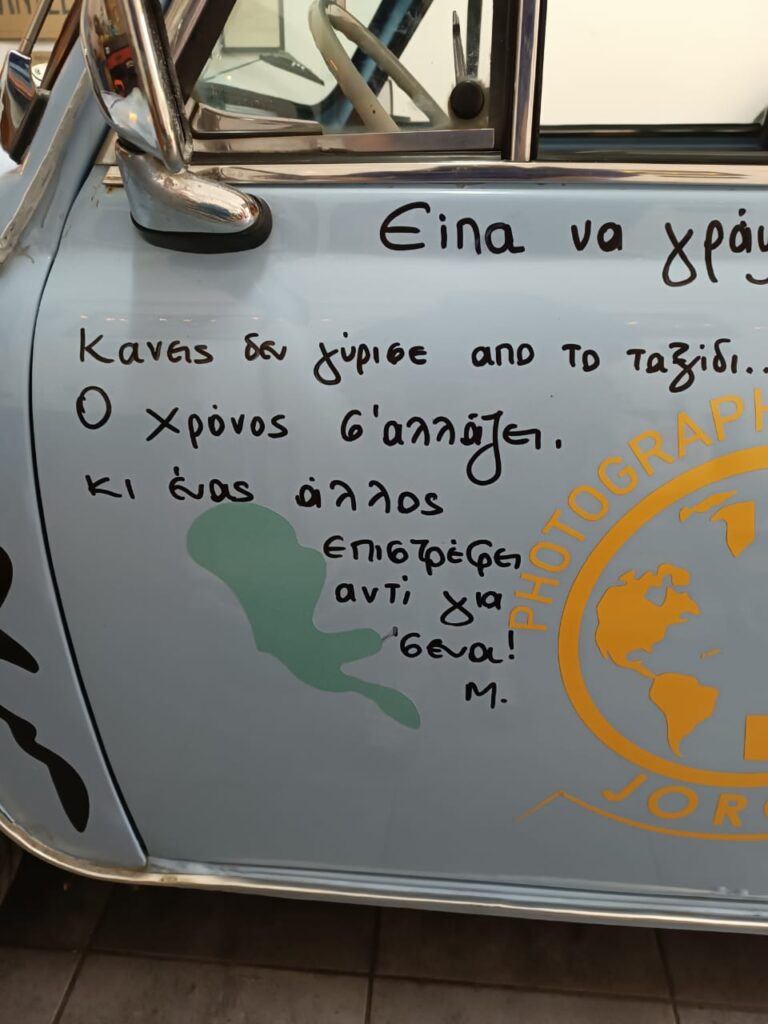 Είπα να γράψ
Κανεις δεν γύρισε απο το ταξίδι..
Ο χρόνος σ'αλλάζει.
κι ένας άλλος
επιστρέφει
αντί για
'σενα!
Μ.
PHOTOGRAPH
JORG